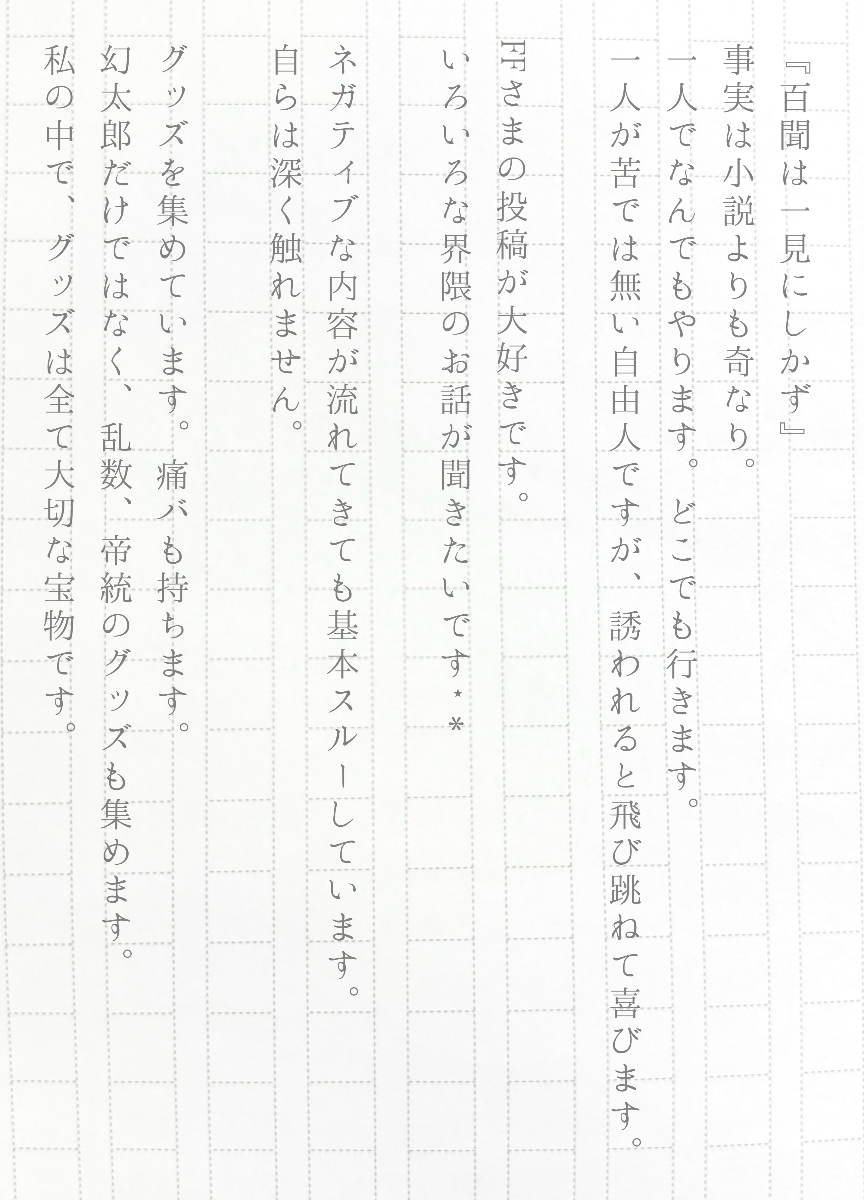 『百聞は一見にしかず』
事実は小説よりも奇なり。
一人でなんでもやります。どこでも行きます。
一人が苦では無い自由人ですが、誘われると飛び跳ねて喜びます。
FFさまの投稿が大好きです。
いろいろな界隈のお話が聞きたいです⋆*
ネガティブな内容が流れてきても基本スルーしています。
自らは深く触れません。
グッズを集めています。痛バも持ちます。
幻太郎だけではなく、乱数、帝統のグッズも集めます。
私の中で、グッズは全て大切な宝物です。